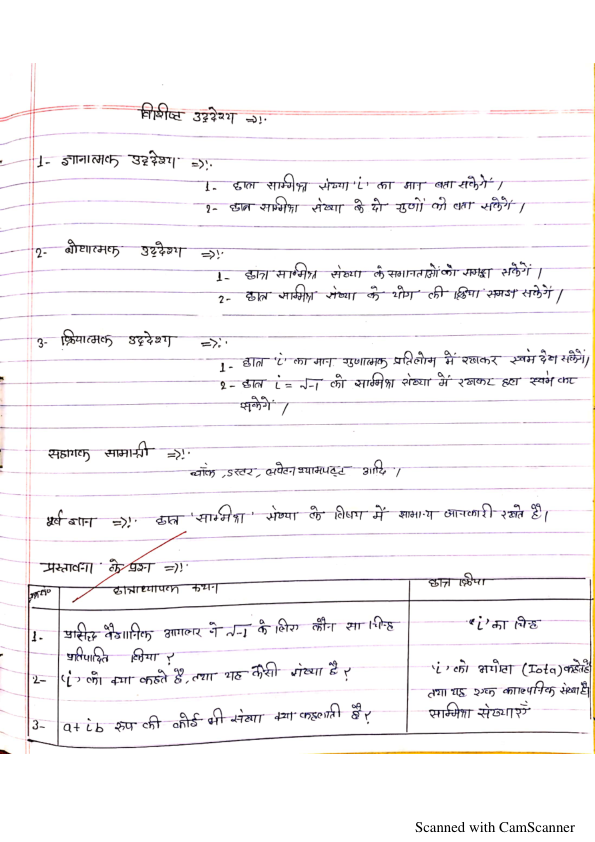 विशिष्ट उद्देश्य =>:·
1- ज्ञानात्मक उद्देश्य =>:·
1- छात्र सम्मिश्र संख्या 'i' का मान बता सकेगें /
2- छात्र सम्मिश्र संख्या के दो गुणों को बता सकेगें /
2- बोधात्मक उद्देश्य =>:·
1- छात्र सम्मिश्र संख्या के समानताओं को समझ सकेगें |
2- छात्र सम्मिश्र संख्या के योग की क्रिया समझ सकेगें /
3- क्रियात्मक उद्देश्य =>:·
1- छात्र 'i' का मान गुणात्मक प्रतिलोम में रखकर स्वंम देख सकेंगें/
2- छात्र i = √-1 को सम्मिश्र संख्या में रखकर हल स्वंम कर
सकेगें /
सहायक सामाग्री =>:·
चॉक, डस्टर, लपेटन श्यामपट्ट आदि /
पूर्व ज्ञान =>:· छात्र 'सम्मिश्र' संख्या के विषय में सामान्य जानकारी रखते है |
प्रस्तावना के प्रश्न =>:·
क्र०सं० छात्राध्यापक कथन छात्र क्रिया
1- प्रसिद्ध वैज्ञानिक आयलर ने √-1 के लिए कौन सा चिन्ह 'i' का चिन्ह
प्रतिपादित किया ?
2- 'i' को क्या कहते है, तथा यह कैसी संख्या है ? 'i' को अयोटा (Iota) कहतेहै
तथा यह एक काल्पनिक संख्याहै|
3- a+ib रूप की कोई भी संख्या क्या कहलाती है ? सम्मिश्र संख्याएँ
Scanned with CamScanner